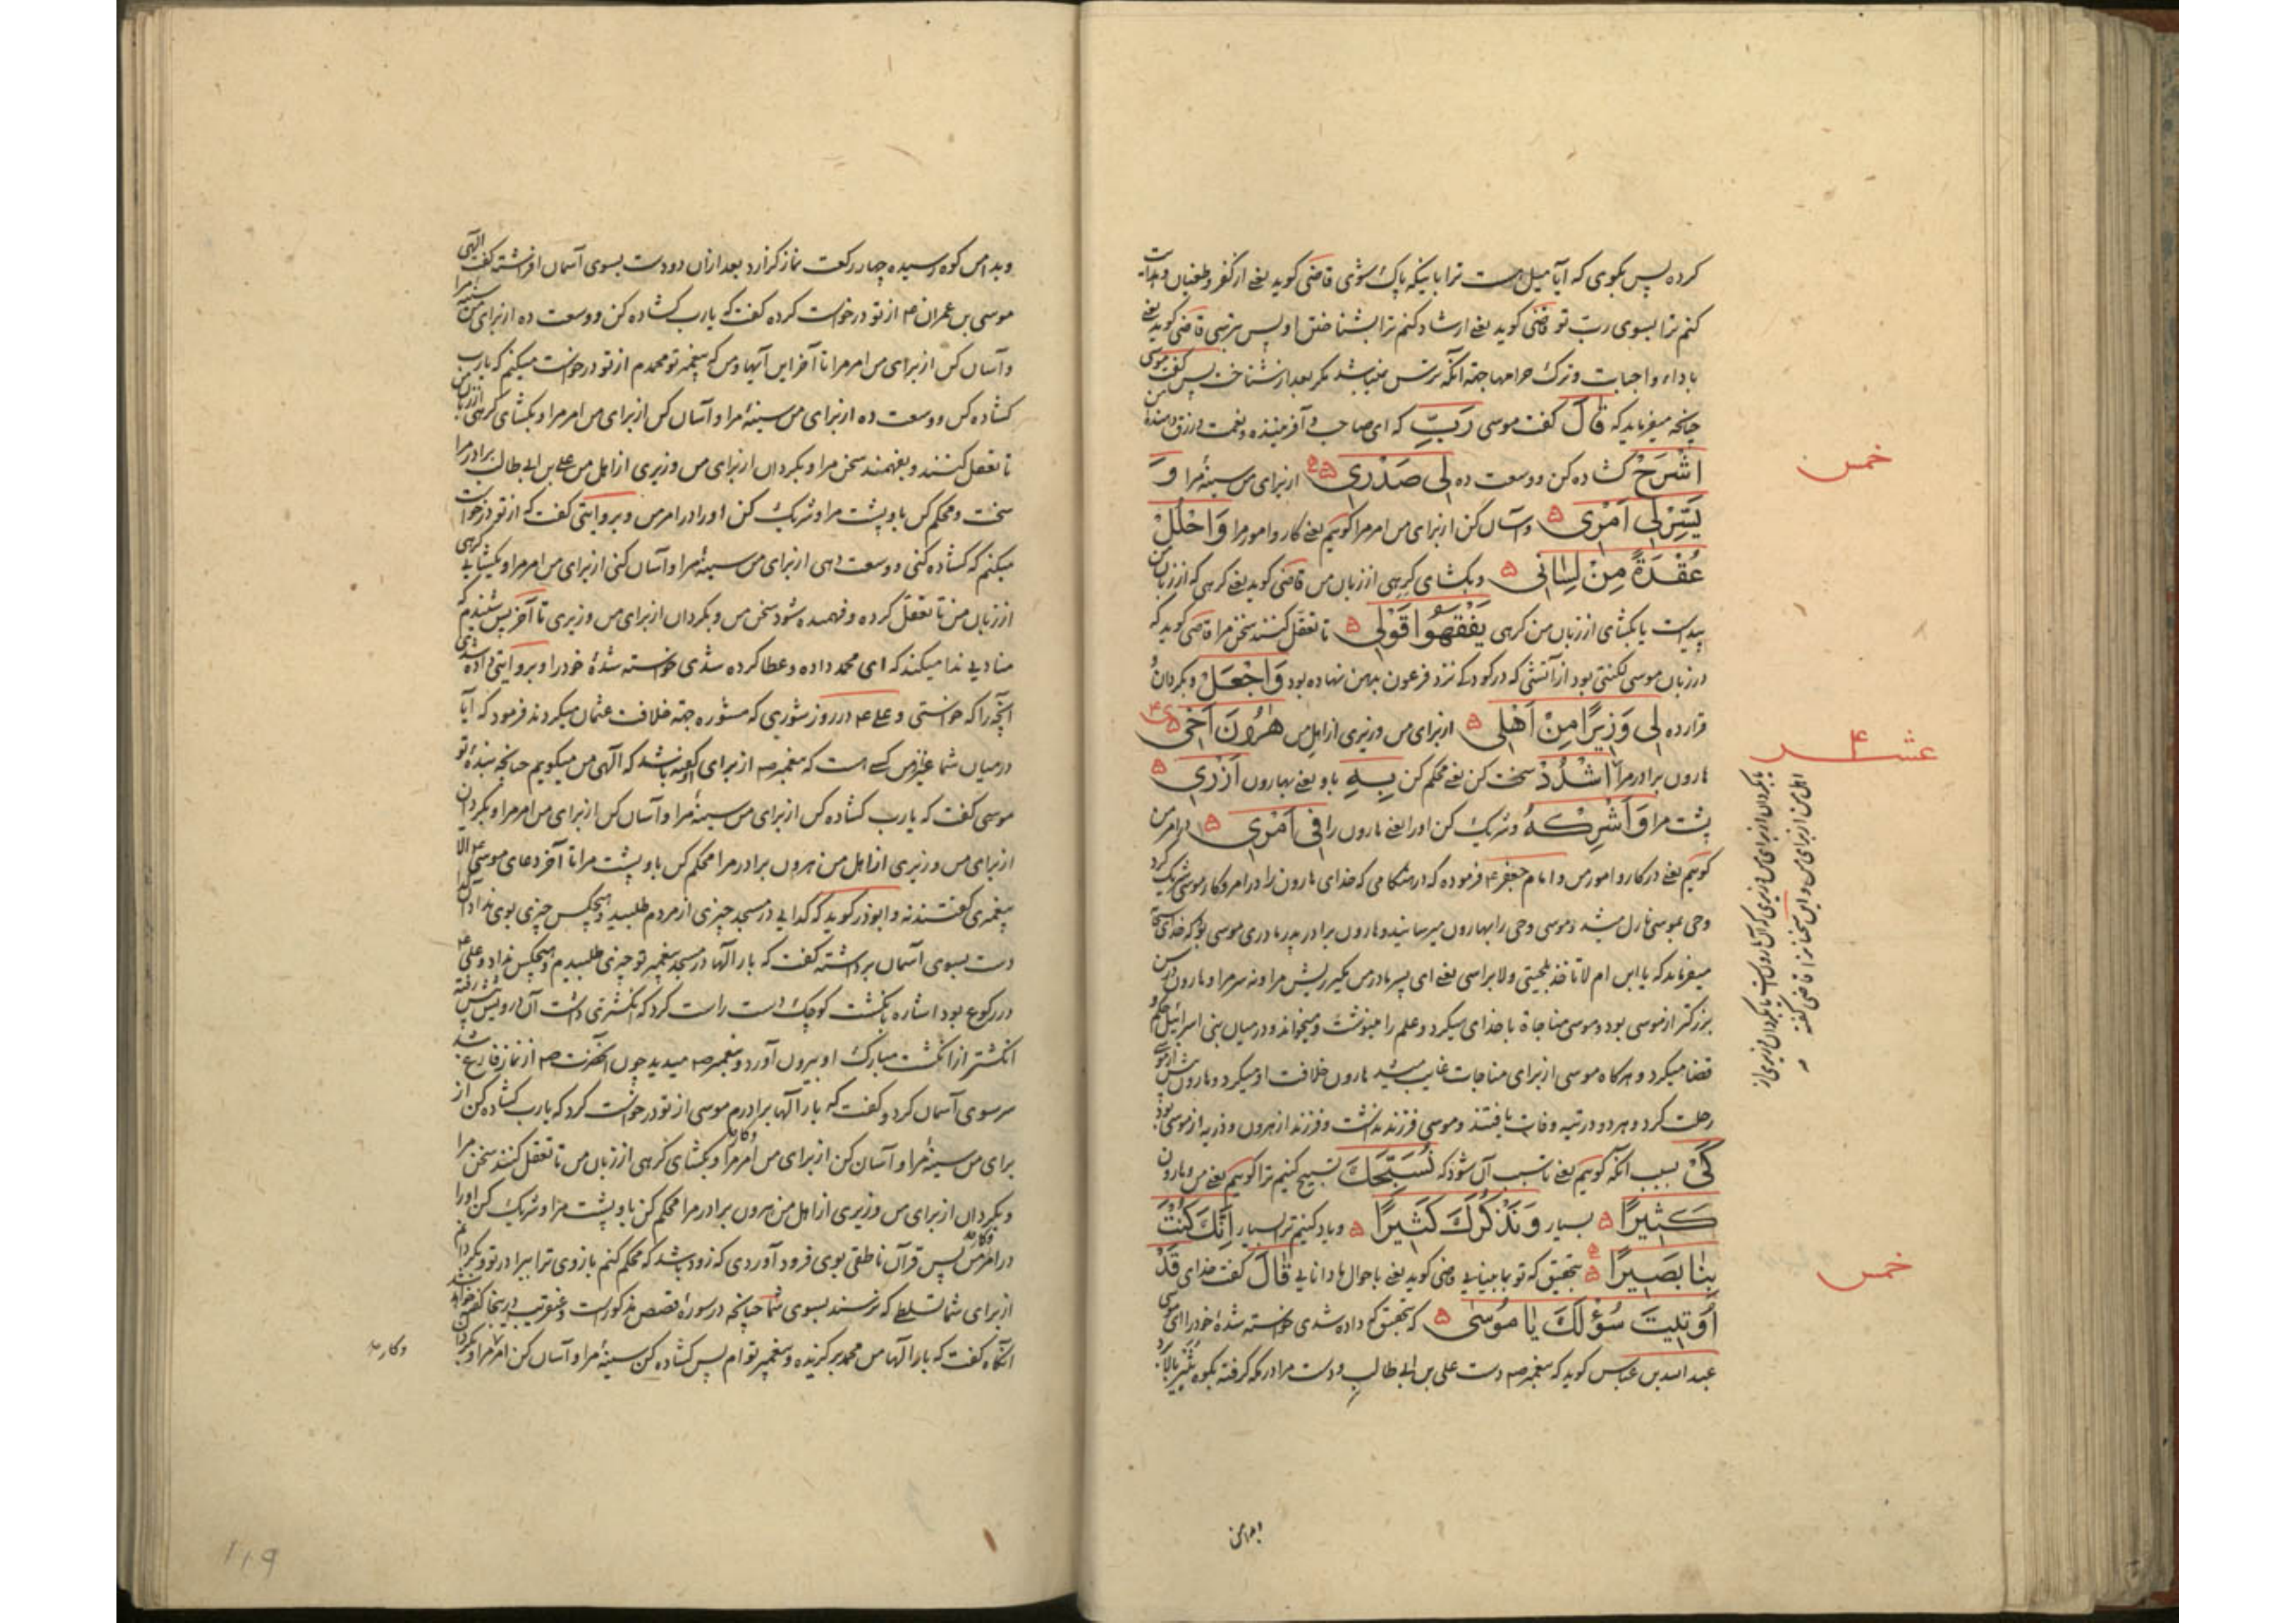 کرده پس بگوی که آیا میل هست ترا باینکه پاک شوی قاضی گوید یعنی از کفر و طغیان و هدایت
کنم ترا بسوی رب تو قاضی گوید یعنی ارشاد کنم ترا بشناختن او پس بترسی قاضی گوید یعنی
باداء واجبات و ترک حرامها جهة آنکه ترس نمیباشد مگر بعد از شناخت پس گفت موسی
چنانچه میفرماید که قَالَ گفت موسی رَبِّ که ای صاحب و آفریننده و نعمت و رزق دهندهٔ من
اشْرَحْ گشاده کن و وسعت ده لِی صَدْرِی از برای من سینهٔ مرا وَ
یَسِّرْ لِی اَمْرِی و آسان کن از برای من امر مرا گوئیم یعنی کار و امور مرا وَاحْلُلْ
عُقْدَةً مِنْ لِسَانِی و بگشای گرهی از زبان من قاضی گوید یعنی گرهی که از زبان من
پیداست یا بگشای از زبان من گرهی یَفْقَهُوا قَوْلِی تا تعقل کنند سخن مرا قاضی گوید که
در زبان موسی لکنتی بود از آتشی که در کودکی نزد فرعون بدهن نهاده بود وَاجْعَلْ و بگردان و
قرار ده لِی وَزِیرًا مِنْ اَهْلِی از برای من وزیری از اهل من هٰرُونَ اَخِی
هارون برادر مرا اشْدُدْ سخت کن یعنی محکم کن بِهِ باو یعنی بهارون اَزْرِی
پشت مرا وَ اَشْرِکْهُ و شریک کن او را یعنی هارون را فِی اَمْرِی در امر من
گوئیم یعنی در کار و امور من و امام جعفر ع فرموده که در هنگامی که خدای هارون را در امر و کار موسی شریک کرد
وحی بموسی نازل میشد و موسی وحی را بهارون میرسانید و هارون برادر پدر مادری موسی بود که خدای
میفرماید که یا ابن ام لا تاخذ بلحیتی ولا براسی یعنی ای پسر مادر من مگیر ریش مرا و نه سر مرا و هارون در سن
بزرگتر از موسی بود و موسی مناجاة با خدای میکرد و علم را مینوشت و میخواند و در میان بنی اسرائیل حکم و
قضا میکرد و هرگاه موسی از برای مناجات غایب میشد هارون خلافت او میکرد و هارون پیش از موسی
رحلت کرد و هر دو در تیه وفات یافتند و موسی فرزند نداشت و فرزند از هرون و ذریه از موسی بود
کَیْ بسبب آنکه گوئیم یعنی تا سبب آن شود که نُسَبِّحَکَ تسبیح کنیم ترا گوئیم یعنی من و هارون
کَثِیرًا بسیار وَ نَذْکُرَکَ کَثِیرًا و یاد کنیم ترا بسیار اِنَّکَ کُنْتَ
بِنَا بَصِیرًا بتحقیق که تو بما بینایی قاضی گوید یعنی باحوال ما دانایی قَالَ گفت خدای قَدْ
اُوتِیتَ سُؤْلَکَ یَا مُوسَی که بتحقیق که داده شدی خواسته شدهٔ خود را ای موسی
عبد الله بن عباس گوید که پیغمبر صم دست علی بن ابی طالب و دست مرا در مکه گرفته بکوه ثبیر بالا برد
و بدامن
خمس
عشر
یا بگردان از برای من وزیری که آن هارونست یا بگردان وزیری از
اهل من از برای من و این سخنان را قاضی گفته
خمس
و بدامن کوه رسیده چهار رکعت نماز گزارد بعد از آن دو دست بسوی آسمان افراشته گفت الهی
موسی بن عمران ع از تو درخواست کرده گفت که یارب گشاده کن و وسعت ده از برای من سینهٔ مرا
و آسان کن از برای من امر مرا تا آخر این آیها و من که پیغمبر تو محمدم از تو درخواست میکنم که یارب
گشاده کن و وسعت ده از برای من سینهٔ مرا و آسان کن از برای من امر مرا و بگشای گرهی از زبان من
تا تعقل کنند و بفهمند سخن مرا و بگردان از برای من وزیری از اهل من علی بن ابی طالب برادر مرا
سخت و محکم کن باو پشت مرا و شریک کن او را در امر من و بروایتی گفت که از تو درخواست
میکنم که گشاده کنی و وسعت دهی از برای من سینهٔ مرا و آسان کنی از برای من امر مرا و بگشایی گرهی
از زبان من تا تعقل کرده و فهمیده شود سخن من و بگردان از برای من وزیری تا آخر پس شنیدم که
منادیی ندا میکند که ای محمد داده و عطا کرده شدی خواسته شدهٔ خود را و بروایتی داده شدی
آنچه را که خواستی و علی ع در روز شوری که مشوره جهة خلافت عثمان میکردند فرمود که آیا
در میان شما غیر از من کسی است که پیغمبر صم از برای او گفته باشد که الهی من میگویم چنانچه بندهٔ تو
موسی گفت که یارب گشاده کن از برای من سینهٔ مرا و آسان کن از برای من امر مرا و بگردان
از برای من وزیری از اهل من هرون برادر مرا محکم کن باو پشت مرا تا آخر دعای موسی ع الا
پیغمبری گفتند نه و ابوذر گوید که گدایی در مسجد چیزی از مردم طلبید و هیچکس چیزی بوی نداد آن
دست بسوی آسمان برداشته گفت که بار الها در مسجد پیغمبر تو چیزی طلبیدم و هیچکس نداد و علی ع
در رکوع بود اشاره بانگشت کوچک دست راست کرد که انگشتری داشت آن درویش پیش رفته
انگشتر از انگشت مبارک او بیرون آورد و پیغمبر صم میدید چون آنحضرت صم از نماز فارغ شد
سر سوی آسمان کرد و گفت که بار الها برادرم موسی از تو درخواست کرد که یارب گشاده کن از
برای من سینهٔ مرا و آسان کن از برای من امر مرا و بگشای گرهی از زبان من تا تعقل کنند سخن مرا
و بگردان از برای من وزیری از اهل من هرون برادر مرا محکم کن باو پشت مرا و شریک کن او را
در امر من پس قرآن ناطقی بوی فرود آوردی که زود باشد که محکم کنم بازوی ترا ببرادر تو و بگردانم
از برای شما تسلطی که نرسند بسوی شما چنانچه در سورهٔ قصص مذکور است و عنقریب در آنجا گفته خواهد شد
آنگاه گفت که بار الها من محمد برگزیده و پیغمبر توام پس گشاده کن سینهٔ مرا و آسان کن امر مرا و بگردان
و کار
۱۱۹